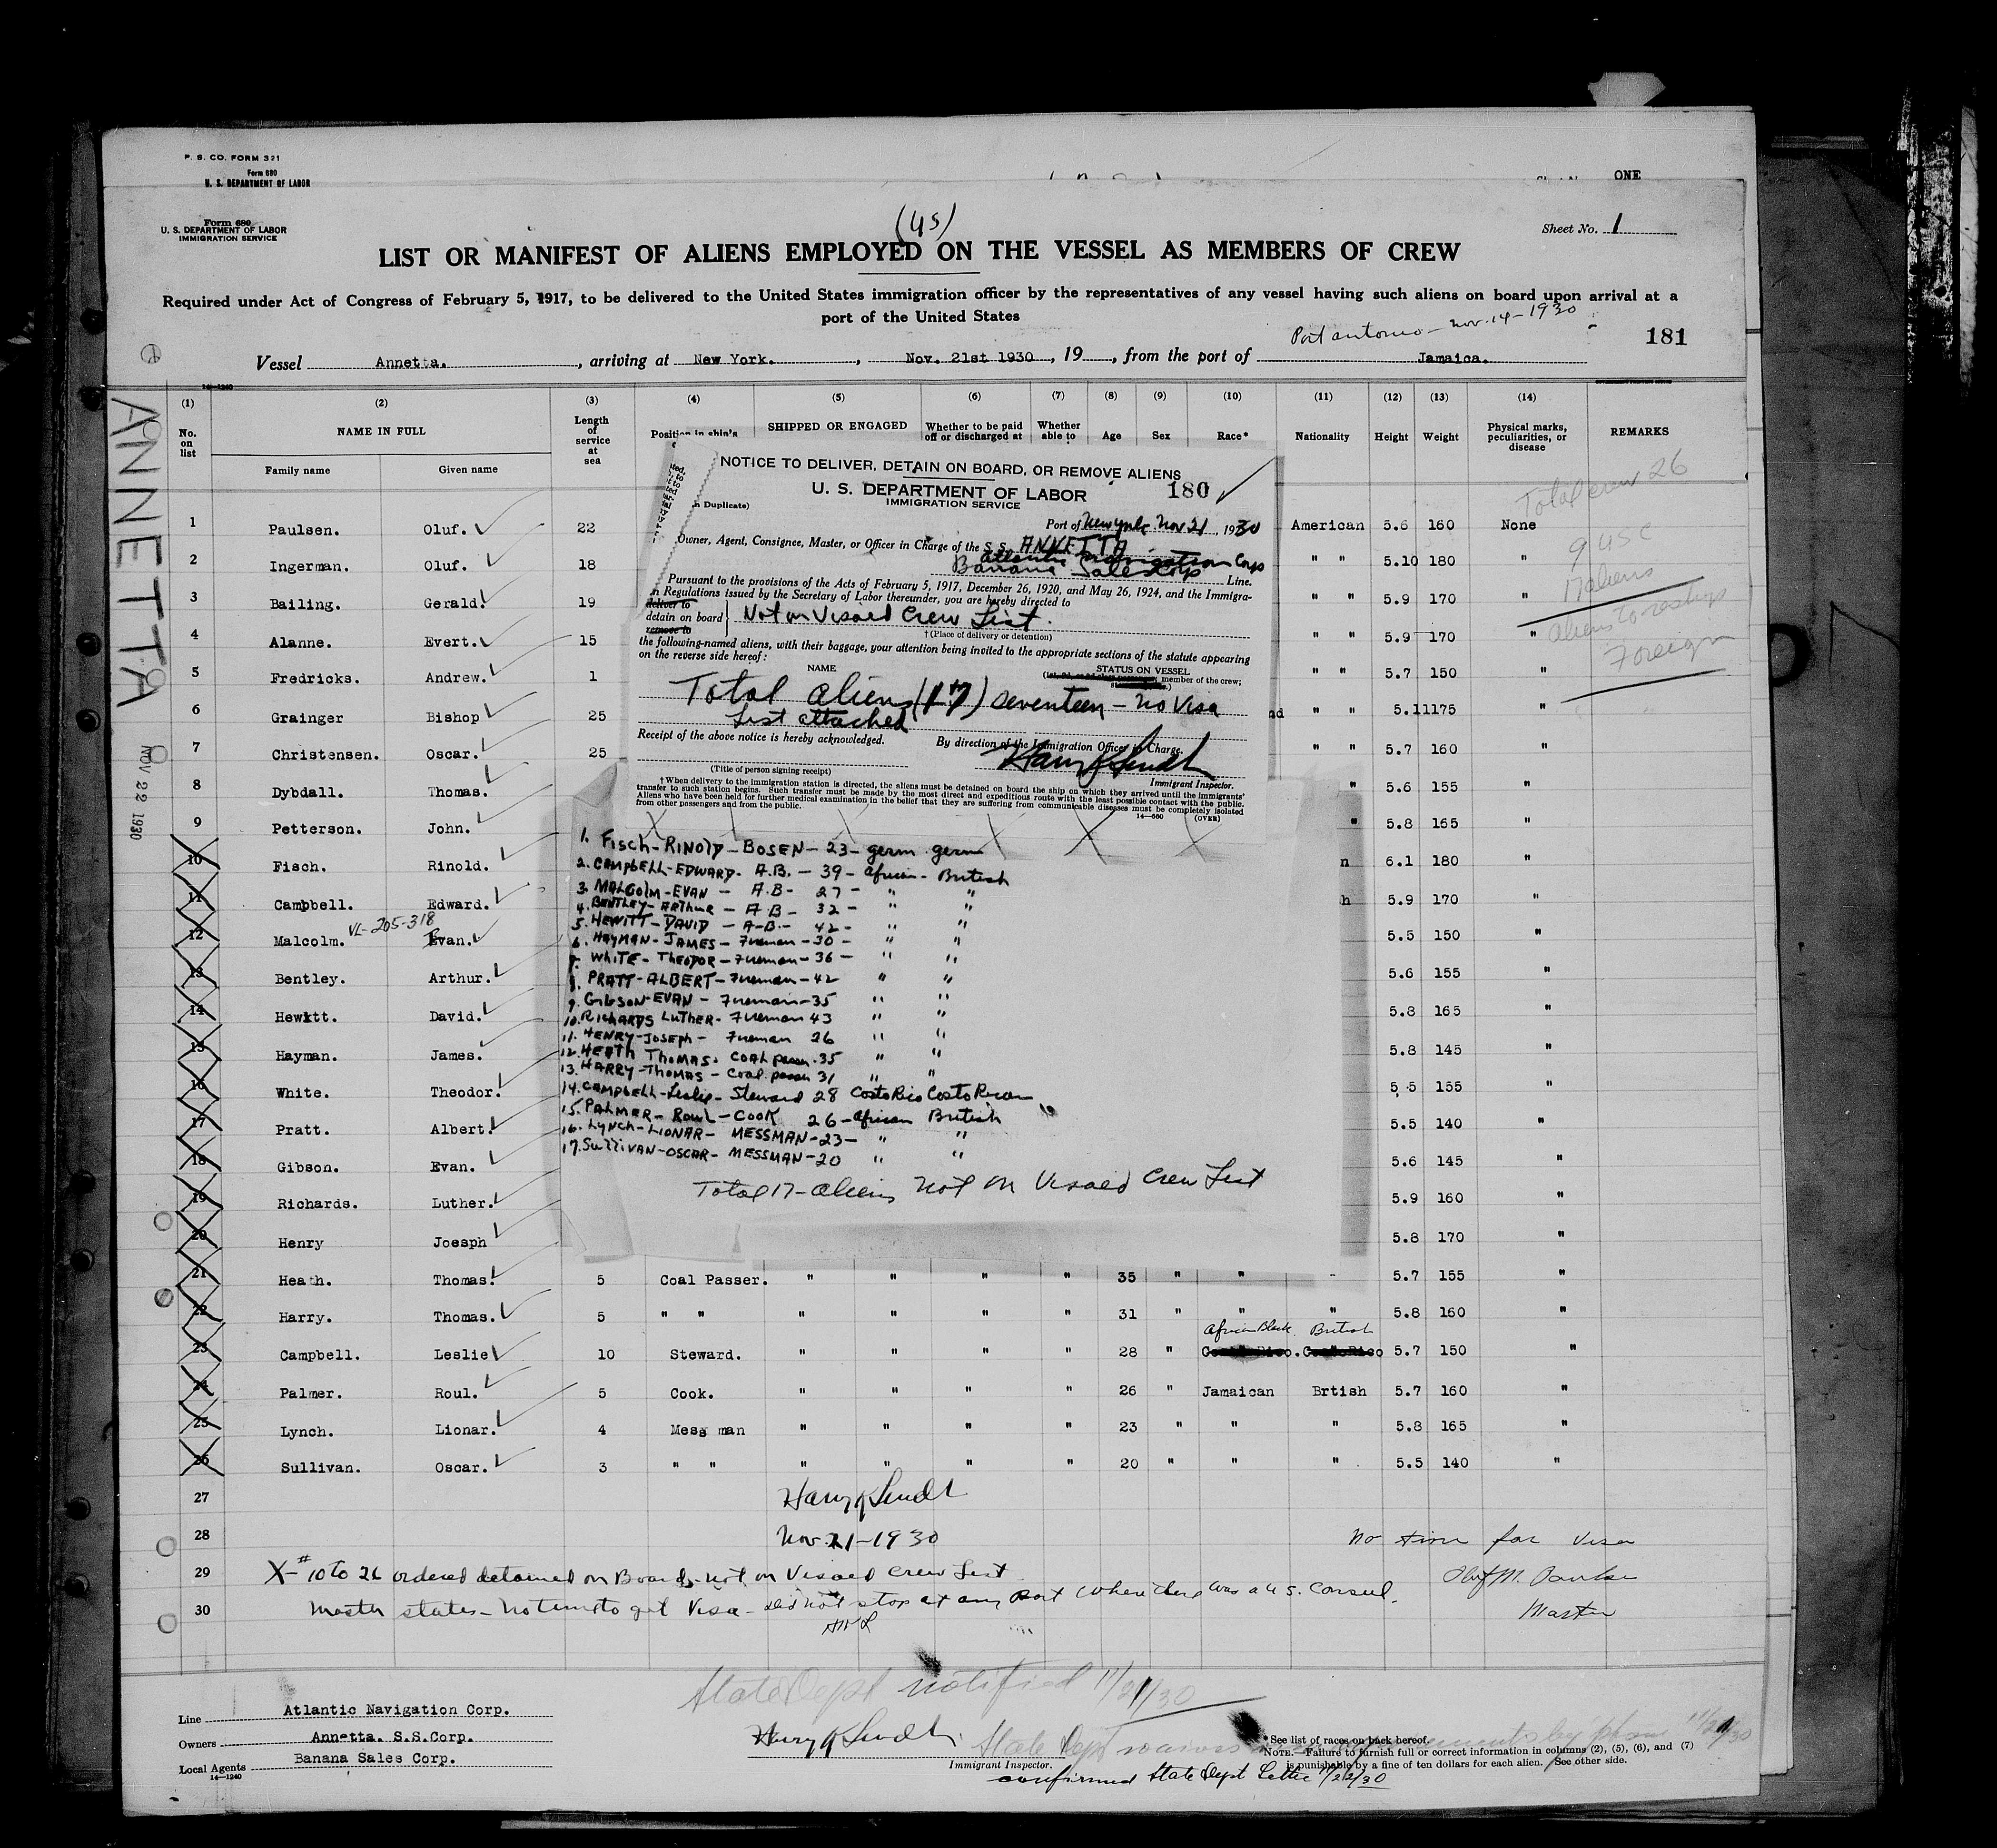 P. S. CO. FORM 321
Form 680
U. S. DEPARTMENT OF LABOR
ONE
Form 680
U. S. DEPARTMENT OF LABOR
IMMIGRATION SERVICE
(45)
Sheet No. 1
LIST OR MANIFEST OF ALIENS EMPLOYED ON THE VESSEL AS MEMBERS OF CREW
Required under Act of Congress of February 5, 1917, to be delivered to the United States immigration officer by the representatives of any vessel having such aliens on board upon arrival at a
port of the United States
Port antonio - Nov. 14 - 1930
181
Vessel Annetta. , arriving at New York. , Nov. 21st 1930 , 19 , from the port of Jamaica.
14-1240
ANNETTA
NOV 22 1930
(1) (2) (3) (4) (5) (6) (7) (8) (9) (10) (11) (12) (13) (14)
No. on list NAME IN FULL Length of service at sea Position in ship's SHIPPED OR ENGAGED Whether to be paid off or discharged at Whether able to Age Sex Race* Nationality Height Weight Physical marks, peculiarities, or disease REMARKS
Family name Given name
Total crew 26
9 USC
17 aliens
aliens to reship
Foreign
1 Paulsen. Oluf. 22 American 5.6 160 None
2 Ingerman. Oluf. 18 " " 5.10 180 "
3 Bailing. Gerald. 19 " " 5.9 170 "
4 Alanne. Evert. 15 " " 5.9 170 "
5 Fredricks. Andrew. 1 " " 5.7 150 "
6 Grainger Bishop 25 nd " " 5.11 175 "
7 Christensen. Oscar. 25 " " 5.7 160 "
8 Dybdall. Thomas. " 5.6 155 "
9 Petterson. John. " 5.8 165 "
10 Fisch. Rinold. n 6.1 180 "
11 Campbell. Edward. h 5.9 170 "
VL-205-318
12 Malcolm. Evan. 5.5 150 "
13 Bentley. Arthur. 5.6 155 "
14 Hewitt. David. 5.8 165 "
15 Hayman. James. 5.8 145 "
16 White. Theodor. 5.5 155 "
17 Pratt. Albert. 5.5 140 "
18 Gibson. Evan. 5.6 145 "
19 Richards. Luther. 5.9 160 "
20 Henry Joesph 5.8 170 "
21 Heath. Thomas. 5 Coal Passer. " " " " 35 " " - 5.7 155 "
22 Harry. Thomas. 5 " " " " " " 31 " " " 5.8 160 "
African Black. British
23 Campbell. Leslie 10 Steward. " " " " 28 " Costo Rico. Costo Rico 5.7 150 "
24 Palmer. Roul. 5 Cook. " " " " 26 " Jamaican Brtish 5.7 160 "
25 Lynch. Lionar. 4 Mess man " " " " 23 " " " 5.8 165 "
26 Sullivan. Oscar. 3 " " " " " " 20 " " " 5.5 140 "
27
28
29
30
NOTICE TO DELIVER, DETAIN ON BOARD, OR REMOVE ALIENS
U. S. DEPARTMENT OF LABOR 180
IMMIGRATION SERVICE
n Duplicate)
Port of New York. Nov 21, 1930
Owner, Agent, Consignee, Master, or Officer in Charge of the S. S. ANNETTA
Atlantic Navigation Corp
Banana Sales Corp Line.
Pursuant to the provisions of the Acts of February 5, 1917, December 26, 1920, and May 26, 1924, and the Immigra-
n Regulations issued by the Secretary of Labor thereunder, you are hereby directed to
deliver to
detain on board Not on Visaed Crew List.
remove to
†(Place of delivery or detention)
the following-named aliens, with their baggage, your attention being invited to the appropriate sections of the statute appearing
on the reverse side hereof:
NAME STATUS ON VESSEL
member of the crew;
Total aliens (17) seventeen - no Visa
List attached
Receipt of the above notice is hereby acknowledged. By direction of the Immigration Officer in Charge.
Harry K Lindt
(Title of person signing receipt) Immigrant Inspector.
†When delivery to the immigration station is directed, the aliens must be detained on board the ship on which they arrived until the immigrants'
transfer to such station begins. Such transfer must be made by the most direct and expeditious route with the least possible contact with the public.
Aliens who have been held for further medical examination in the belief that they are suffering from communicable diseases must be completely isolated
from other passengers and from the public.
14-660 (OVER)
1. Fisch-RINOLD-BOSEN-23-germ. germ
2. CAMPBELL-EDWARD- A.B. - 39 - African - British
3. MALCOLM-EVAN - A.B - 27 - " "
4. BENTLEY-ARTHUR - A.B - 32 - " "
5. HEWITT-DAVID - A-B.- 42 - " "
6. HAYMAN-JAMES-Fireman-30- " "
7. WHITE-THEODOR-Fireman-36 - " "
8. PRATT-ALBERT-Fireman-42 " "
9. Gibson-EVAN - Fireman-35 " "
10. RICHARDS LUTHER- Fireman 43 " "
11. HENRY-JOSEPH- Fireman 26 " "
12. HEATH THOMAS. COAL passer.35 " "
13. HARRY-THOMAS - Coal passer 31 " "
14. CAMPBELL-Leslie- Steward 28 Costo Rico Costo Rican
15. PALMER- Roul-COOK 26-African British
16. LYNCH-LIONAR- MESSMAN-23- " "
17. SULLIVAN-OSCAR- MESSMAN-20 " "
Total 17-aliens Not on Visaed Crew List
Harry K Lindt
Nov. 21-1930
No time for Visa
X-# 10 to 26 ordered detained on Board, not on Visaed Crew List
Oluf M. Paulsen
Master states - No time to get Visa - did not stop at any Port where there was a U.S. Consul.
Master
HKL
State Dept notified 11/21/30
Line Atlantic Navigation Corp.
Owners Annetta. S.S.Corp.
Local Agents Banana Sales Corp.
14-1240
Harry K Lindt.
Immigrant Inspector.
State Dept waives by phone 11/21/30
confirmed State Dept Letter 11/22/30
*See list of races on back hereof.
NOTE.—Failure to furnish full or correct information in columns (2), (5), (6), and (7)
is punishable by a fine of ten dollars for each alien. See other side.